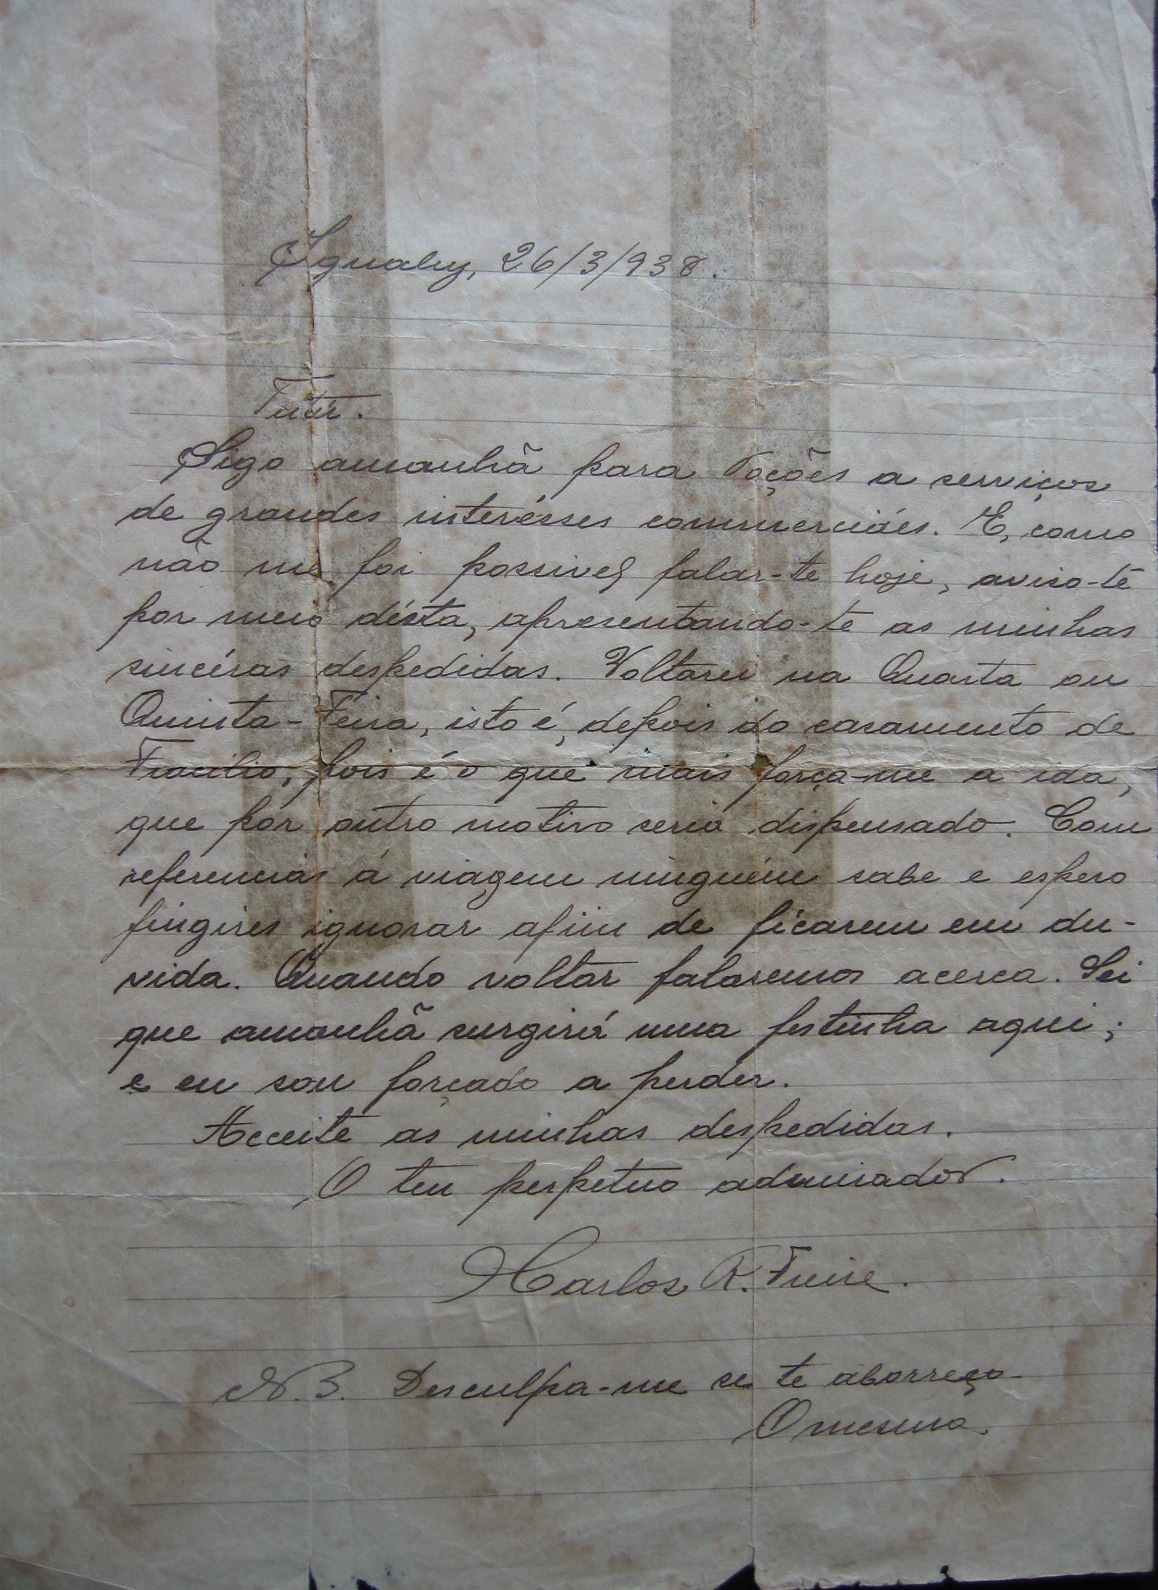 Iguahy, 26/3/938.
Tutú.
Sigo amanhã para Poções a serviços
de grandes interésses commerciáes. E, como
não me foi possivel falar-te hoje, aviso-te
por meio désta, apresentando-te as minhas
sincéras despedidas. Voltarei na Quarta ou
Quinta-Feira, isto é, depois do casamento de
pois é o que mais força-me a ida,
que por outro motivo seria dispensado. Com
referencias á viagem ninguém sabe e espero
fingires ignorar afim de ficarem em du-
vida. Quando voltar falaremos acerca. Sei
que amanhã surgirá uma festinha aqui;
e eu sou forçado a perder.
Acceite as minhas despedidas.
O teu perpetuo admirador.
Carlos R. Freire.
N.B. Desculpa-me se te aborreço.
O mesmo.